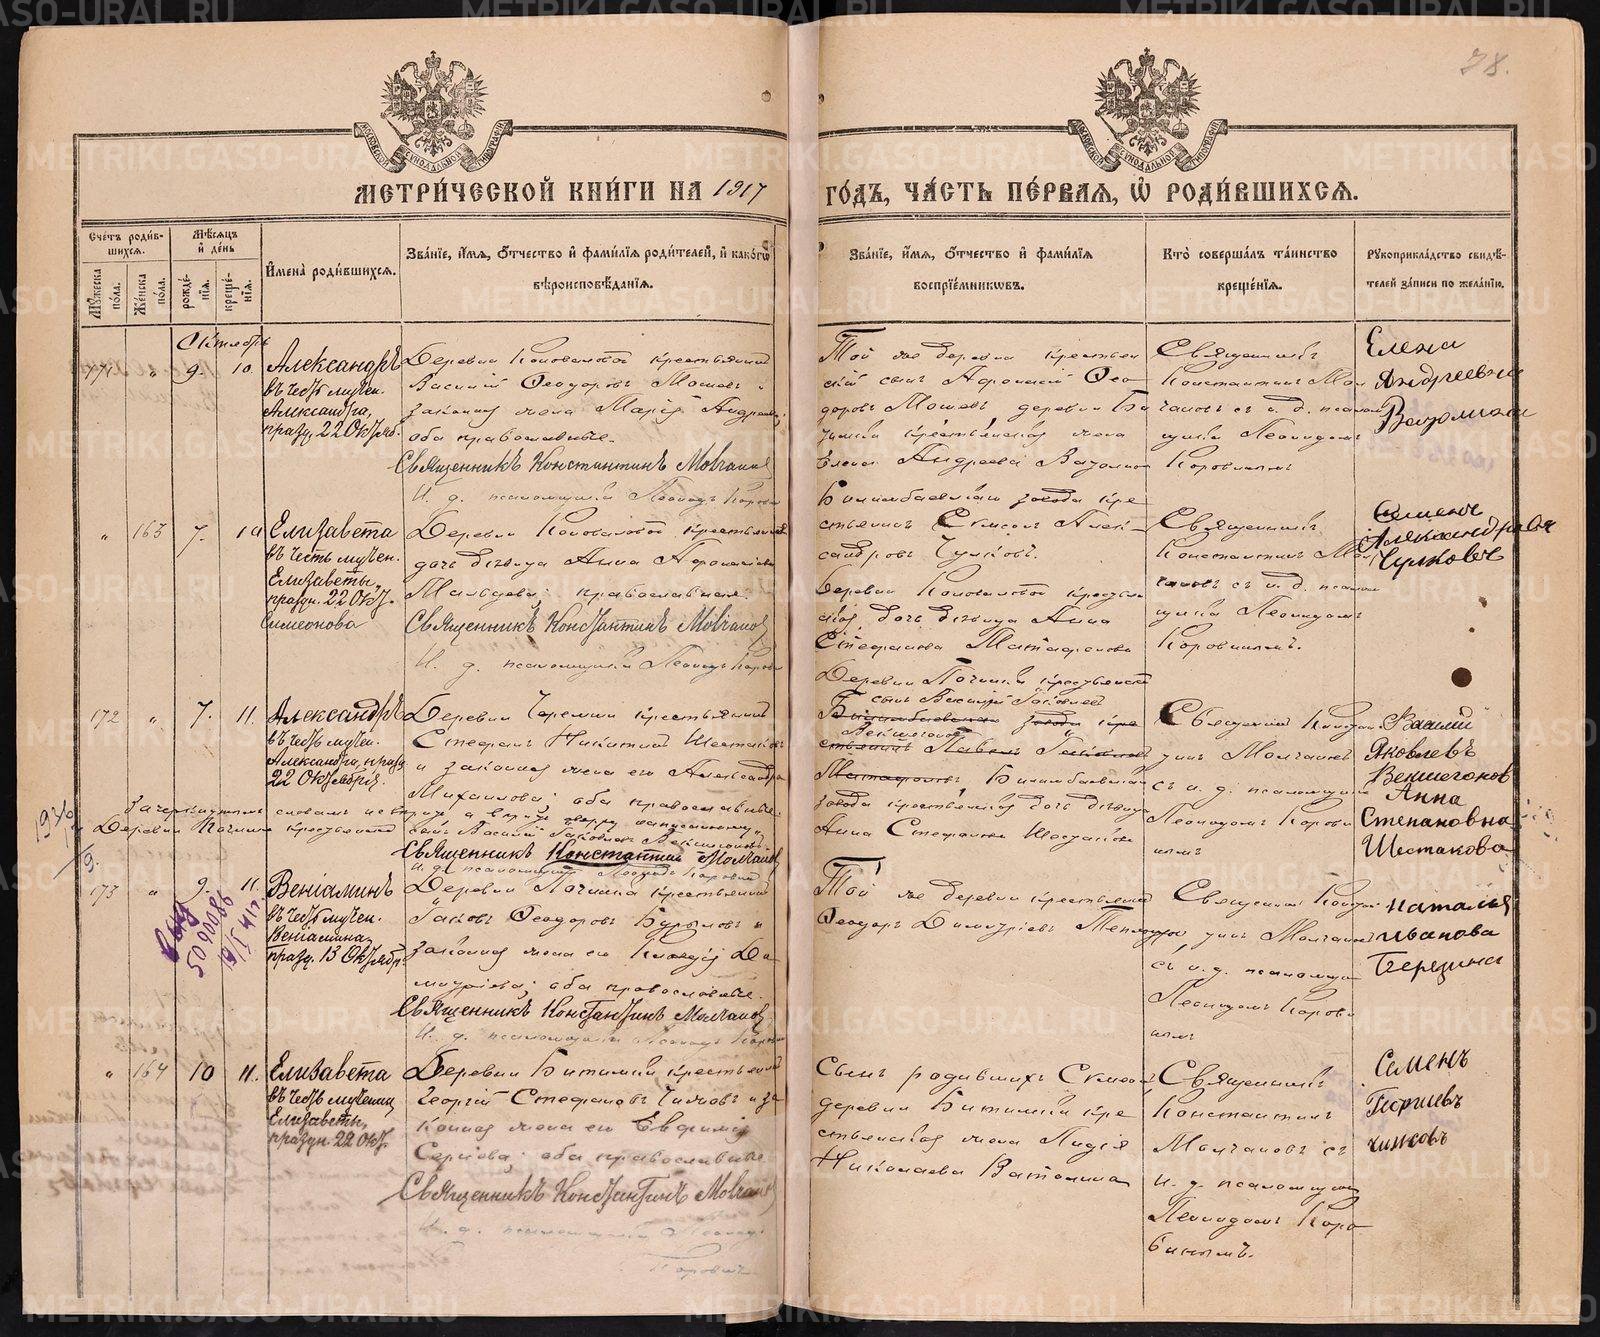 78.
МОСКОВСКОЙ СѴНОДАЛЬНОЙ ТИПОГРАФІИ
МОСКОВСКОЙ СѴНОДАЛЬНОЙ ТИПОГРАФІИ
МЕТРИ́ЧЕСКОЙ КНИ́ГИ НА 1917
ГО́ДЪ, ЧА́СТЬ ПЕ́РВАЯ, Ѽ РОДИ́ВШИХСЯ.
Сче́тъ роди́в-
шихся.
Му́жеска по́ла.
Же́нска по́ла.
Мѣ́сяцъ
и҆ де́нь
рожде́-
нїя.
креще́-
нїя.
И҆мена̀ роди́вшихся.
Зва́нїе, и҆́мя, Ѻ҆́тчество и҆ фами́лїя роди́телей, и҆ како́гѡ
вѣроисповѣ́данїя.
Зва́нїе, и҆́мя, Ѻ҆́тчество и҆ фами́лїя
воспрїе́мникѡвъ.
Кто̀ соверша́лъ та́инство
креще́нїя.
Рꙋкоприкла́дство свидѣ́-
телей за́писи по жела́нїю.
Октябрь
171 " 9. 10.
Александръ
въ честь мучен.
Александра,
празд. 22 Октяб.
Деревни Коноваловой крестьянинъ
Василій Ѳеодоровъ Мошевъ и
законная жена Марія Андреева;
оба православные.
Священникъ Константинъ Молчановъ
И. д. псаломщика Леонидъ Корови
Той же деревни крестьян
скій сынъ Ѳео
доровъ Мошевъ деревни
крестьянская жена
Елена Андреева
Священникъ
Константинъ Мол
чановъ съ и. д. псалом
щика Леонидомъ
Коровинымъ
Елена
Андреевна
" 163 7. 10
Елизавета
въ честь мучен.
Елизаветы,
праздн. 22 Окт.
Симеонова
Деревни Коноваловой крестьянская
дочь дѣвица Анна
Мальцева; православная.
Священникъ Константинъ Молчановъ
И. д. псаломщика Леонидъ Корови
Билимбаевскаго завода кре
стьянинъ Симеонъ Алек-
сандровъ Чулковъ.
Деревни Коноваловой крестьян
ская дочь дѣвица Анна
Стефанова
Священникъ
Константинъ Мол
чановъ съ и. д. псалом
щика Леонидомъ
Коровинымъ.
Семенъ
Александровъ
Чулковъ
172 " 7. 11.
Александръ
въ честь мучен.
Александра, празд.
22 Октября
Деревни Черемши крестьянинъ
Стефанъ Никитинъ Шестаковъ
и законная жена его Александра
Михаилова; оба православные.
Зачеркнутымъ словамъ не вѣрить, а вѣрить сверху написанному
Деревни Починка крестьянскій сынъ Василій Іаковлевъ Векшегоновъ.
Священникъ Константинъ Молчановъ
И. д. псаломщика Леонидъ Коровинъ
Деревни Починка крестьянскій
сынъ Василій Іаковлевъ
Билимбаевскаго завода кре
Векшегоновъ
стьянинъ Павелъ
Билимбаевскаго
завода крестьянская дочь дѣвица
Анна Стефанова Шестакова
Священникъ Констан
тинъ Молчановъ
съ и. д. псаломщика
Леонидомъ Корови
нымъ
Василій
Яковлевъ
Векшегонов
Анна
Степановна
Шестакова
173 " 9. 11.
Веніаминъ
въ честь мучен.
Веніамина,
празд. 13 Октябр.
Деревни Починка крестьянинъ
Іаковъ Ѳеодоровъ и
законная жена его Клавдія Ди
митріева; оба православные.
Священникъ Константинъ Молчановъ.
И. д. псаломщика Леонидъ Корови
Той же деревни крестьянинъ
Ѳеодоръ Димитріевъ
Священникъ Констан
тинъ Молчановъ
съ и. д. псаломщика
Леонидомъ Корови
нымъ
Наталія
Иванова
Березина
" 164 10 11.
Елизавета
въ честь мученицы
Елизаветы,
праздн. 22 Окт.
Деревни Битимки крестьянинъ
Георгій Стефановъ и за
конная жена его Евфимія
Сергіева; оба православные.
Священникъ Константинъ Молчановъ
И. д. псаломщика Леонидъ
Коровинъ
Сынъ родившихъ Симеонъ,
деревни Битимки кре
стьянская жена Лидія
Николаева Ватолина
Священникъ
Константинъ
Молчановъ съ
и. д. псаломщика
Леонидомъ Коро
винымъ.
Семенъ
Георгіевъ
METRIKI.GASO-URAL.RU